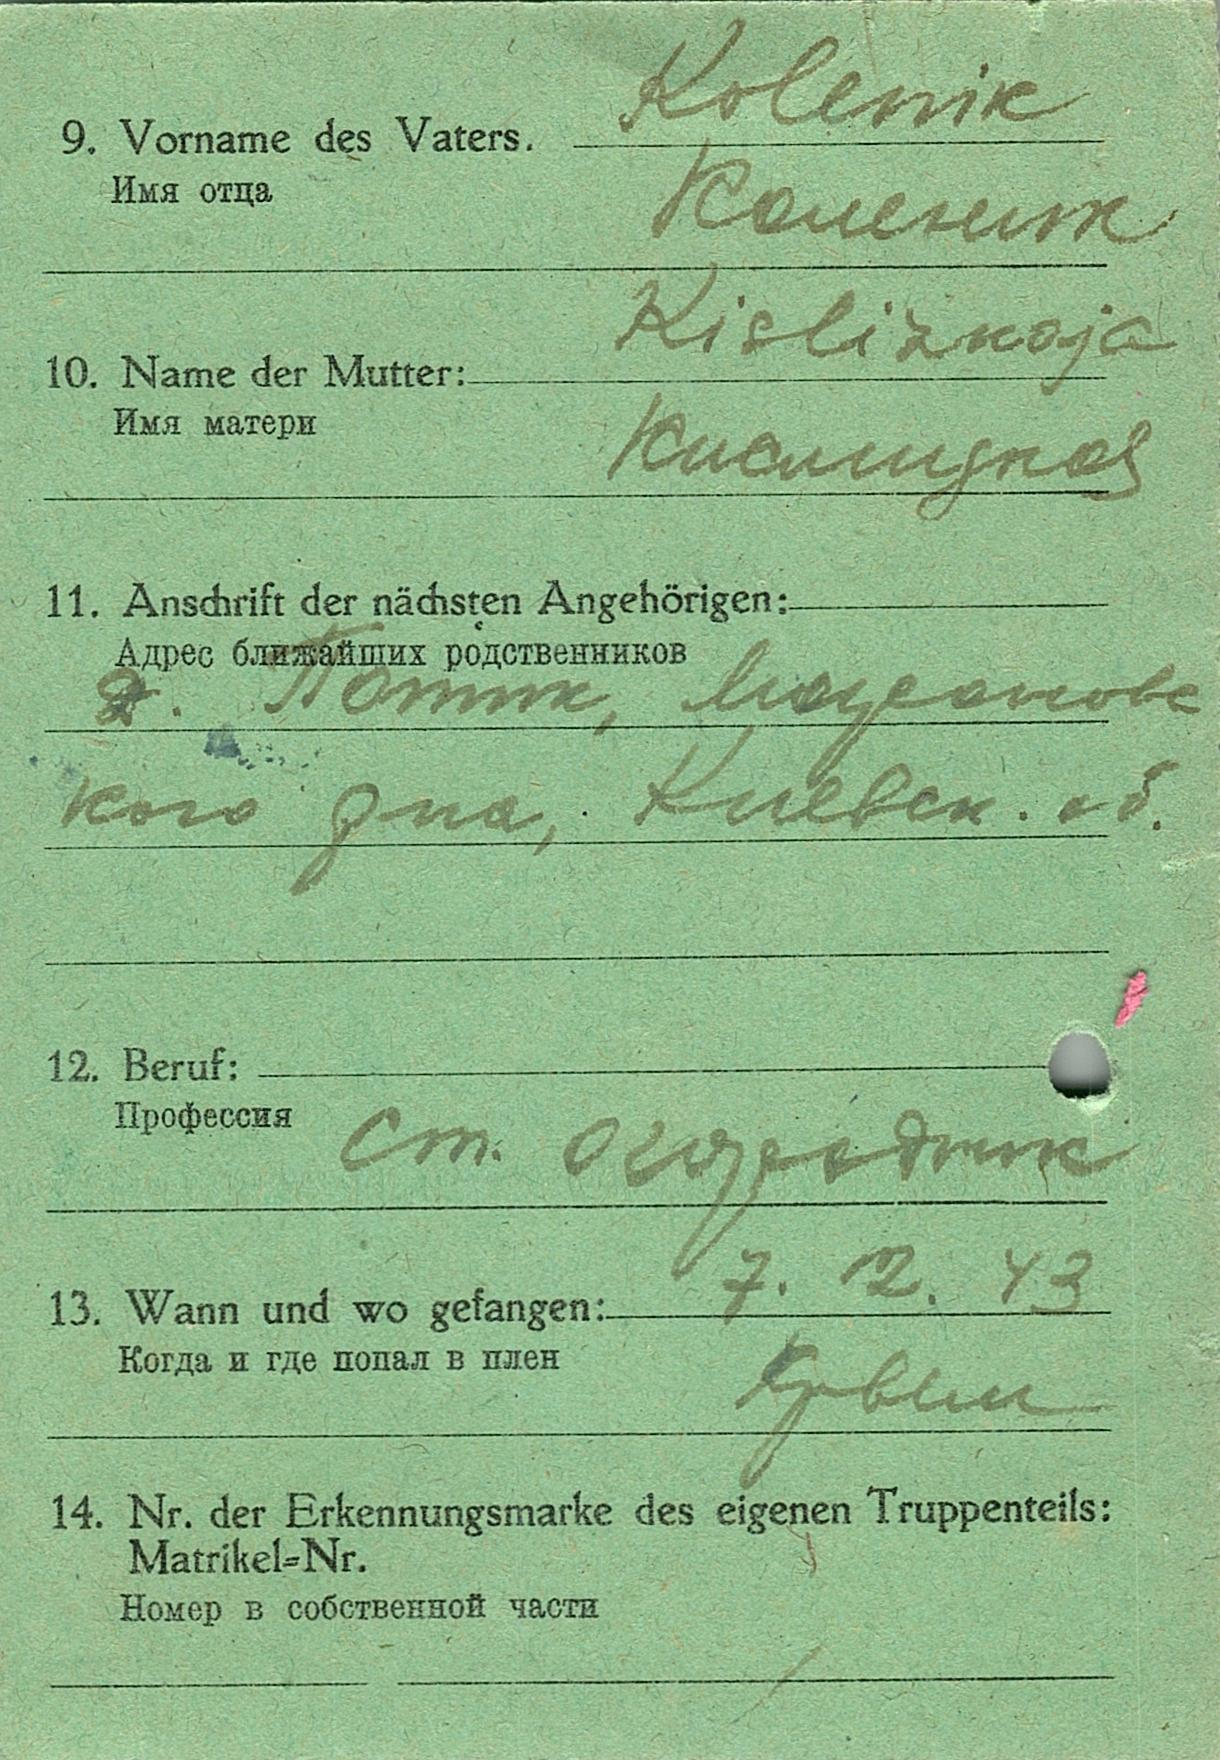 Kolenik
9. Vorname des Vaters.
Имя отца
Каленик
Kislizkaja
10. Name der Mutter:
Имя матери
Кислицкая
11. Anschrift der nächsten Angehörigen:
Адрес ближайших родственников
д. Поток,
кого р-на, Киевск. об.
12. Beruf:
Профессия
Ст. огородник
7. 2. 43
13. Wann und wo gefangen:
Когда и где попал в плен
14. Nr. der Erkennungsmarke des eigenen Truppenteils:
Matrikel=Nr.
Номер в собственной части